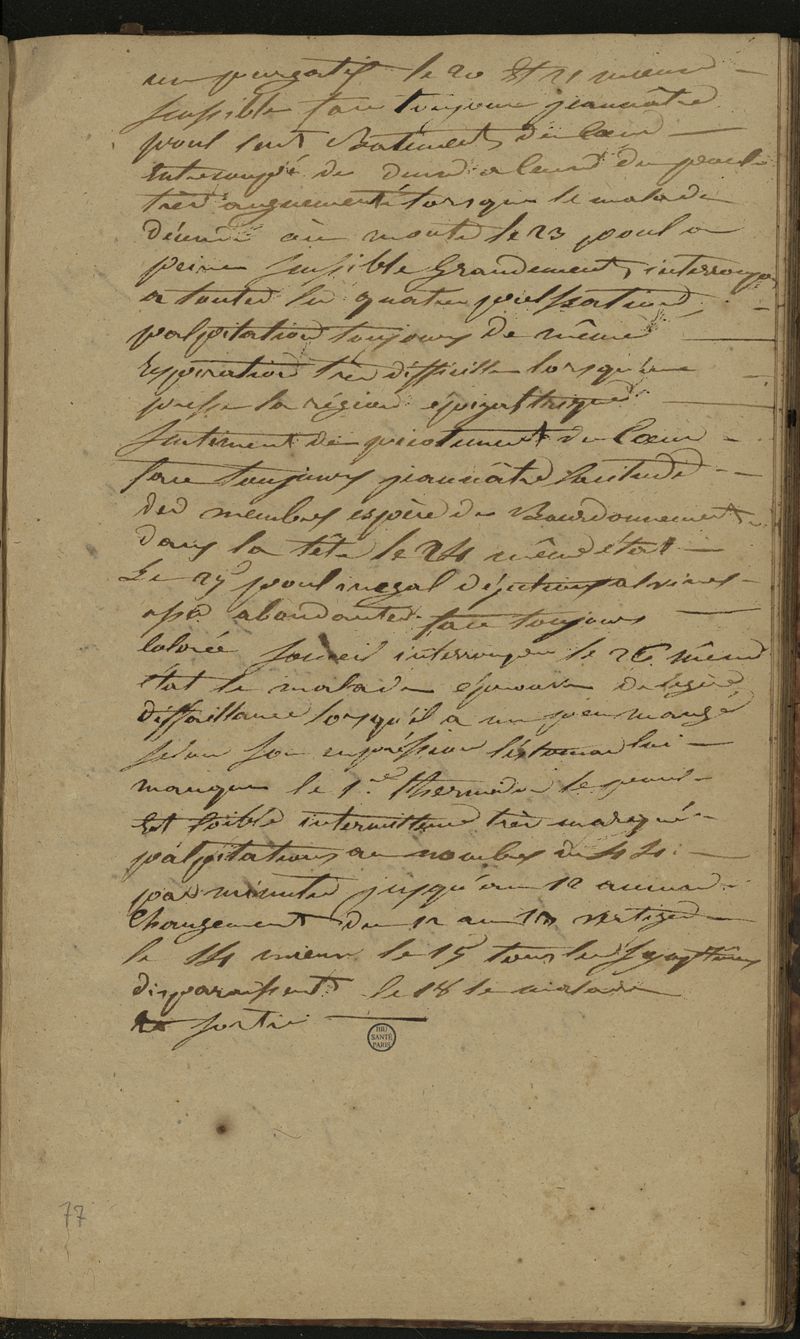 un purgatif le 20 et 21 mieux
sensible face toujours jaunâtre
poul lent Batiments du Coeur
Entrecoupé de du poul
très augmenté lorsque le malade
décend où monte le 23 poul a
peine sensible Grandement interrompu
a toutes les quatre pulsations
palpitations toujours de même
Expiration très difficille lorsqu'on
presse la région épigastrique
sentiment de picotement du Coeur
face toujours jaunâtre lassitude
des membres espèce de Bourdonnement
dans la tête le 24 même état
Le 25 poul inegal déjections alvines
abondantes face toujours
colorée someil interrompu le 26 même
état le malade éprouve de légère
deffaillance lorsqu'il a un peu mangé
selon son expréssion l'éstomac lui
manque le 1er thermidor le poul
Est foible intermittence très marquée
palpitations au nombre de 44
par minute jusqu'au 12 aucun
Changement du 12 au 13 vertiges
le 14 mieux le 15 tous les symptômes
disparaissent le 18 le malade
sortie
BIU
SANTÉ
PARIS
77